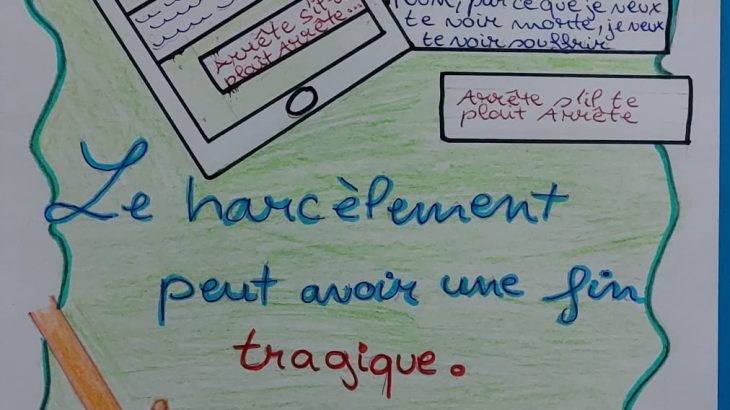 Arrête s'il te
plaît Arrête...
Non, parce que je veux
te voir morte, je veux
te voir souffrir
Arrête s'il te
plaît Arrête
Le harcèlement
peut avoir une fin
tragique.